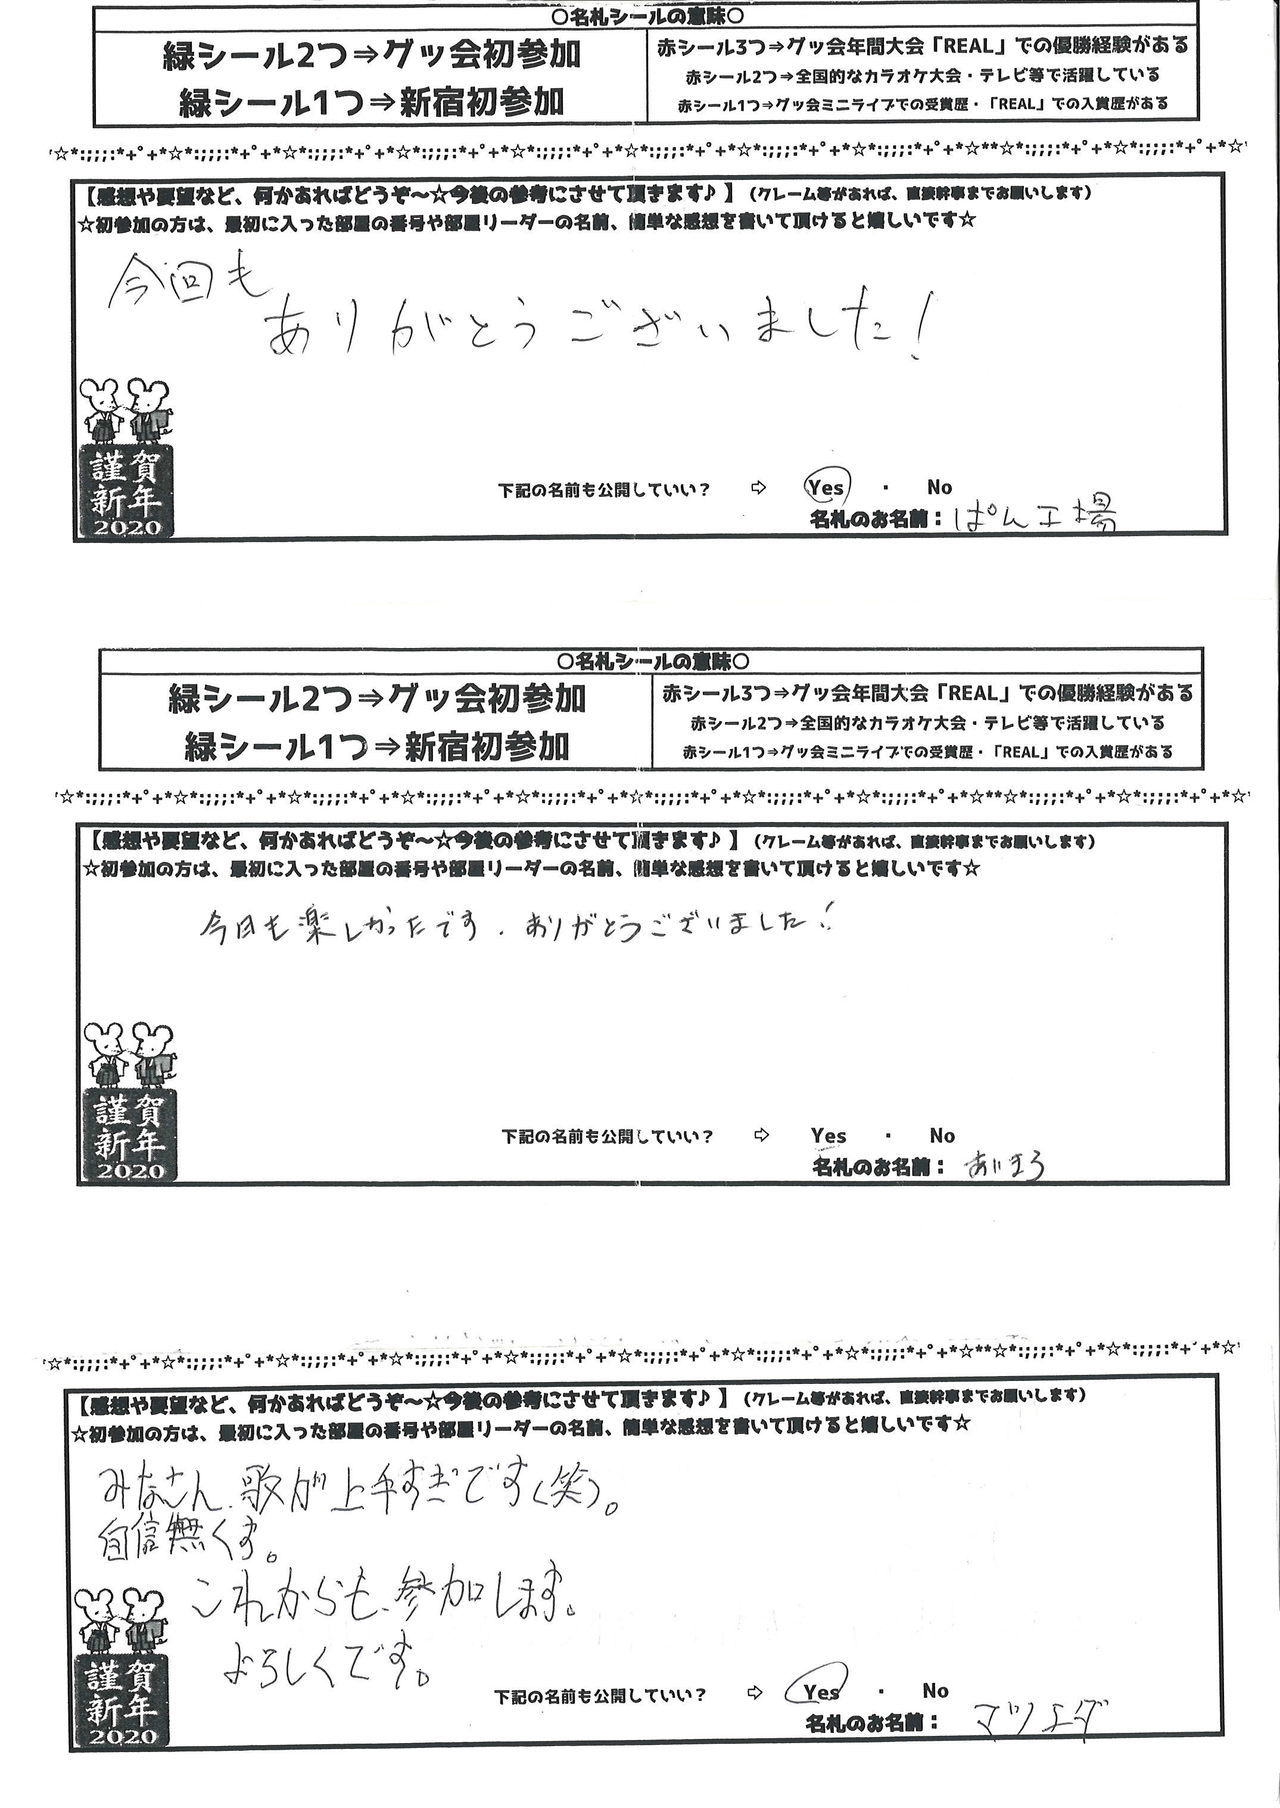 ○名札シールの意味○
緑シール2つ⇒グッ会初参加
緑シール1つ⇒新宿初参加
赤シール3つ⇒グッ会年間大会「REAL」での優勝経験がある
赤シール2つ⇒全国的なカラオケ大会・テレビ等で活躍している
赤シール1つ⇒グッ会ミニライブでの受賞歴・「REAL」での入賞歴がある
'☆*:;;;:*+ﾟ+*☆*:;;;:*+ﾟ+*☆*:;;;:*+ﾟ+*☆*:;;;:*+ﾟ+*☆*:;;;:*+ﾟ+*☆*:;;;:*+ﾟ+*☆*:;;;:*+ﾟ+*☆**☆*:;;;:*+ﾟ+*☆*:;;;:*+ﾟ+*☆'
【感想や要望など、何かあればどうぞ～☆今後の参考にさせて頂きます♪】（クレーム等があれば、直接幹事までお願いします）
☆初参加の方は、最初に入った部屋の番号や部屋リーダーの名前、簡単な感想を書いて頂けると嬉しいです☆
今回も
ありがとうございました!
謹賀
新年
2020
下記の名前も公開していい？ ⇨ Yes ・ No
名札のお名前：ぱん工場
○名札シールの意味○
緑シール2つ⇒グッ会初参加
緑シール1つ⇒新宿初参加
赤シール3つ⇒グッ会年間大会「REAL」での優勝経験がある
赤シール2つ⇒全国的なカラオケ大会・テレビ等で活躍している
赤シール1つ⇒グッ会ミニライブでの受賞歴・「REAL」での入賞歴がある
'☆*:;;;:*+ﾟ+*☆*:;;;:*+ﾟ+*☆*:;;;:*+ﾟ+*☆*:;;;:*+ﾟ+*☆*:;;;:*+ﾟ+*☆*:;;;:*+ﾟ+*☆*:;;;:*+ﾟ+*☆**☆*:;;;:*+ﾟ+*☆*:;;;:*+ﾟ+*☆'
【感想や要望など、何かあればどうぞ～☆今後の参考にさせて頂きます♪】（クレーム等があれば、直接幹事までお願いします）
☆初参加の方は、最初に入った部屋の番号や部屋リーダーの名前、簡単な感想を書いて頂けると嬉しいです☆
今日も楽しかったです．ありがとうございました!
謹賀
新年
2020
下記の名前も公開していい？ ⇨ Yes ・ No
名札のお名前：あいまろ
'☆*:;;;:*+ﾟ+*☆*:;;;:*+ﾟ+*☆*:;;;:*+ﾟ+*☆*:;;;:*+ﾟ+*☆*:;;;:*+ﾟ+*☆*:;;;:*+ﾟ+*☆*:;;;:*+ﾟ+*☆**☆*:;;;:*+ﾟ+*☆*:;;;:*+ﾟ+*☆'
【感想や要望など、何かあればどうぞ～☆今後の参考にさせて頂きます♪】（クレーム等があれば、直接幹事までお願いします）
☆初参加の方は、最初に入った部屋の番号や部屋リーダーの名前、簡単な感想を書いて頂けると嬉しいです☆
みなさん、歌が上手すぎです(笑)。
自信無くす。
これからも、参加します。
よろしくです。
謹賀
新年
2020
下記の名前も公開していい？ ⇨ Yes ・ No
名札のお名前：マツエダ